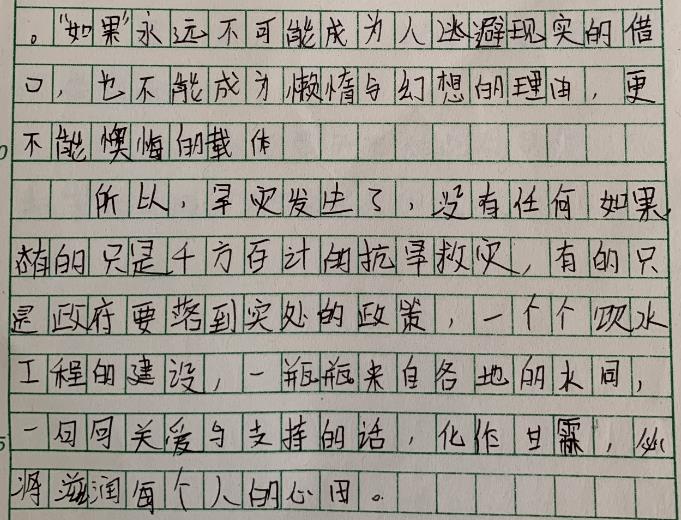 。“如果”永远不可能成为人逃避现实的借
口，也不能成为懒惰与幻想的理由，更
不能懊悔的载体
所以，旱灾发生了，没有任何如果，
有的只是千方百计的抗旱救灾，有的只
是政府要落到实处的政策，一个个饮水
工程的建设，一瓶瓶来自各地的水同，
一句句关爱与支持的话，化作甘霖，必
将滋润每个人的心田。